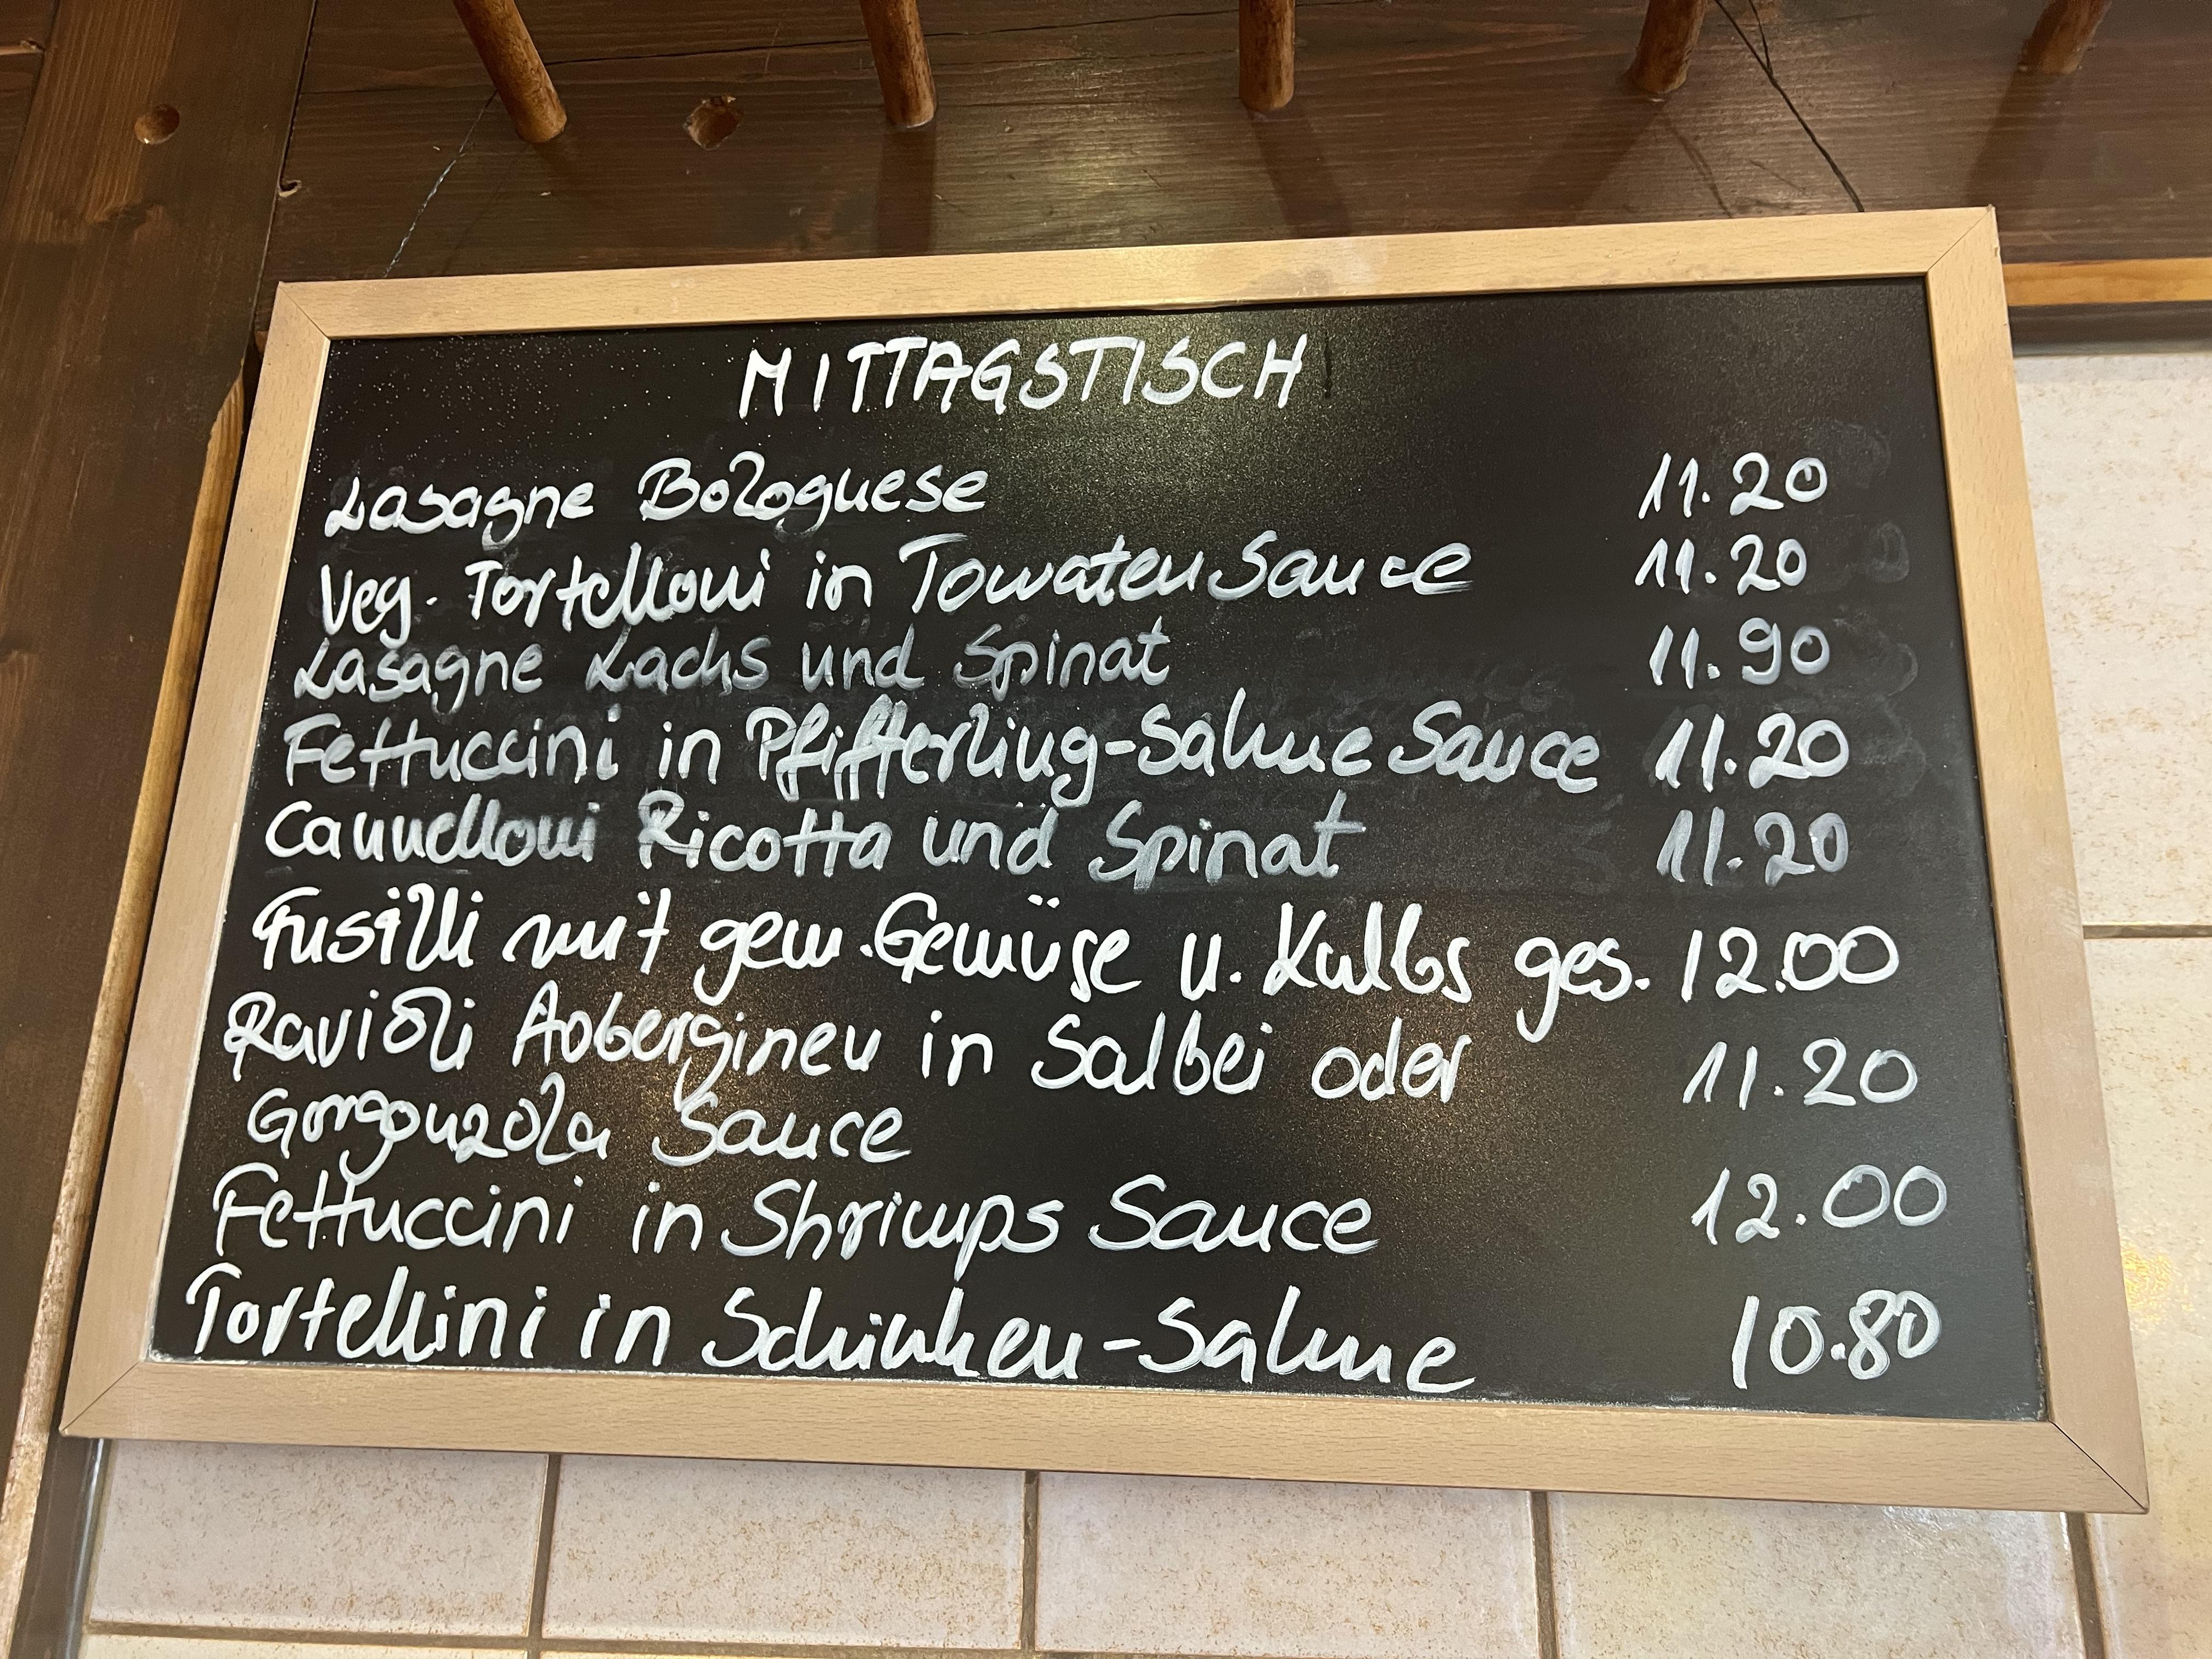 MITTAGSTISCH
Lasagne Bolognese 11.20
Veg. Tortelloni in Tomaten Sauce 11.20
Lasagne Lachs und Spinat 11.90
Fettuccini in Pfifferling-Sahne Sauce 11.20
Cannelloni Ricotta und Spinat 11.20
Fusilli mit gem. Gemüse u. Kalbs ges. 12.00
Ravioli Auberginen in Salbei oder 11.20
Gorgonzola Sauce
Fettuccini in Shrimps Sauce 12.00
Tortellini in Schinken-Sahne 10.80